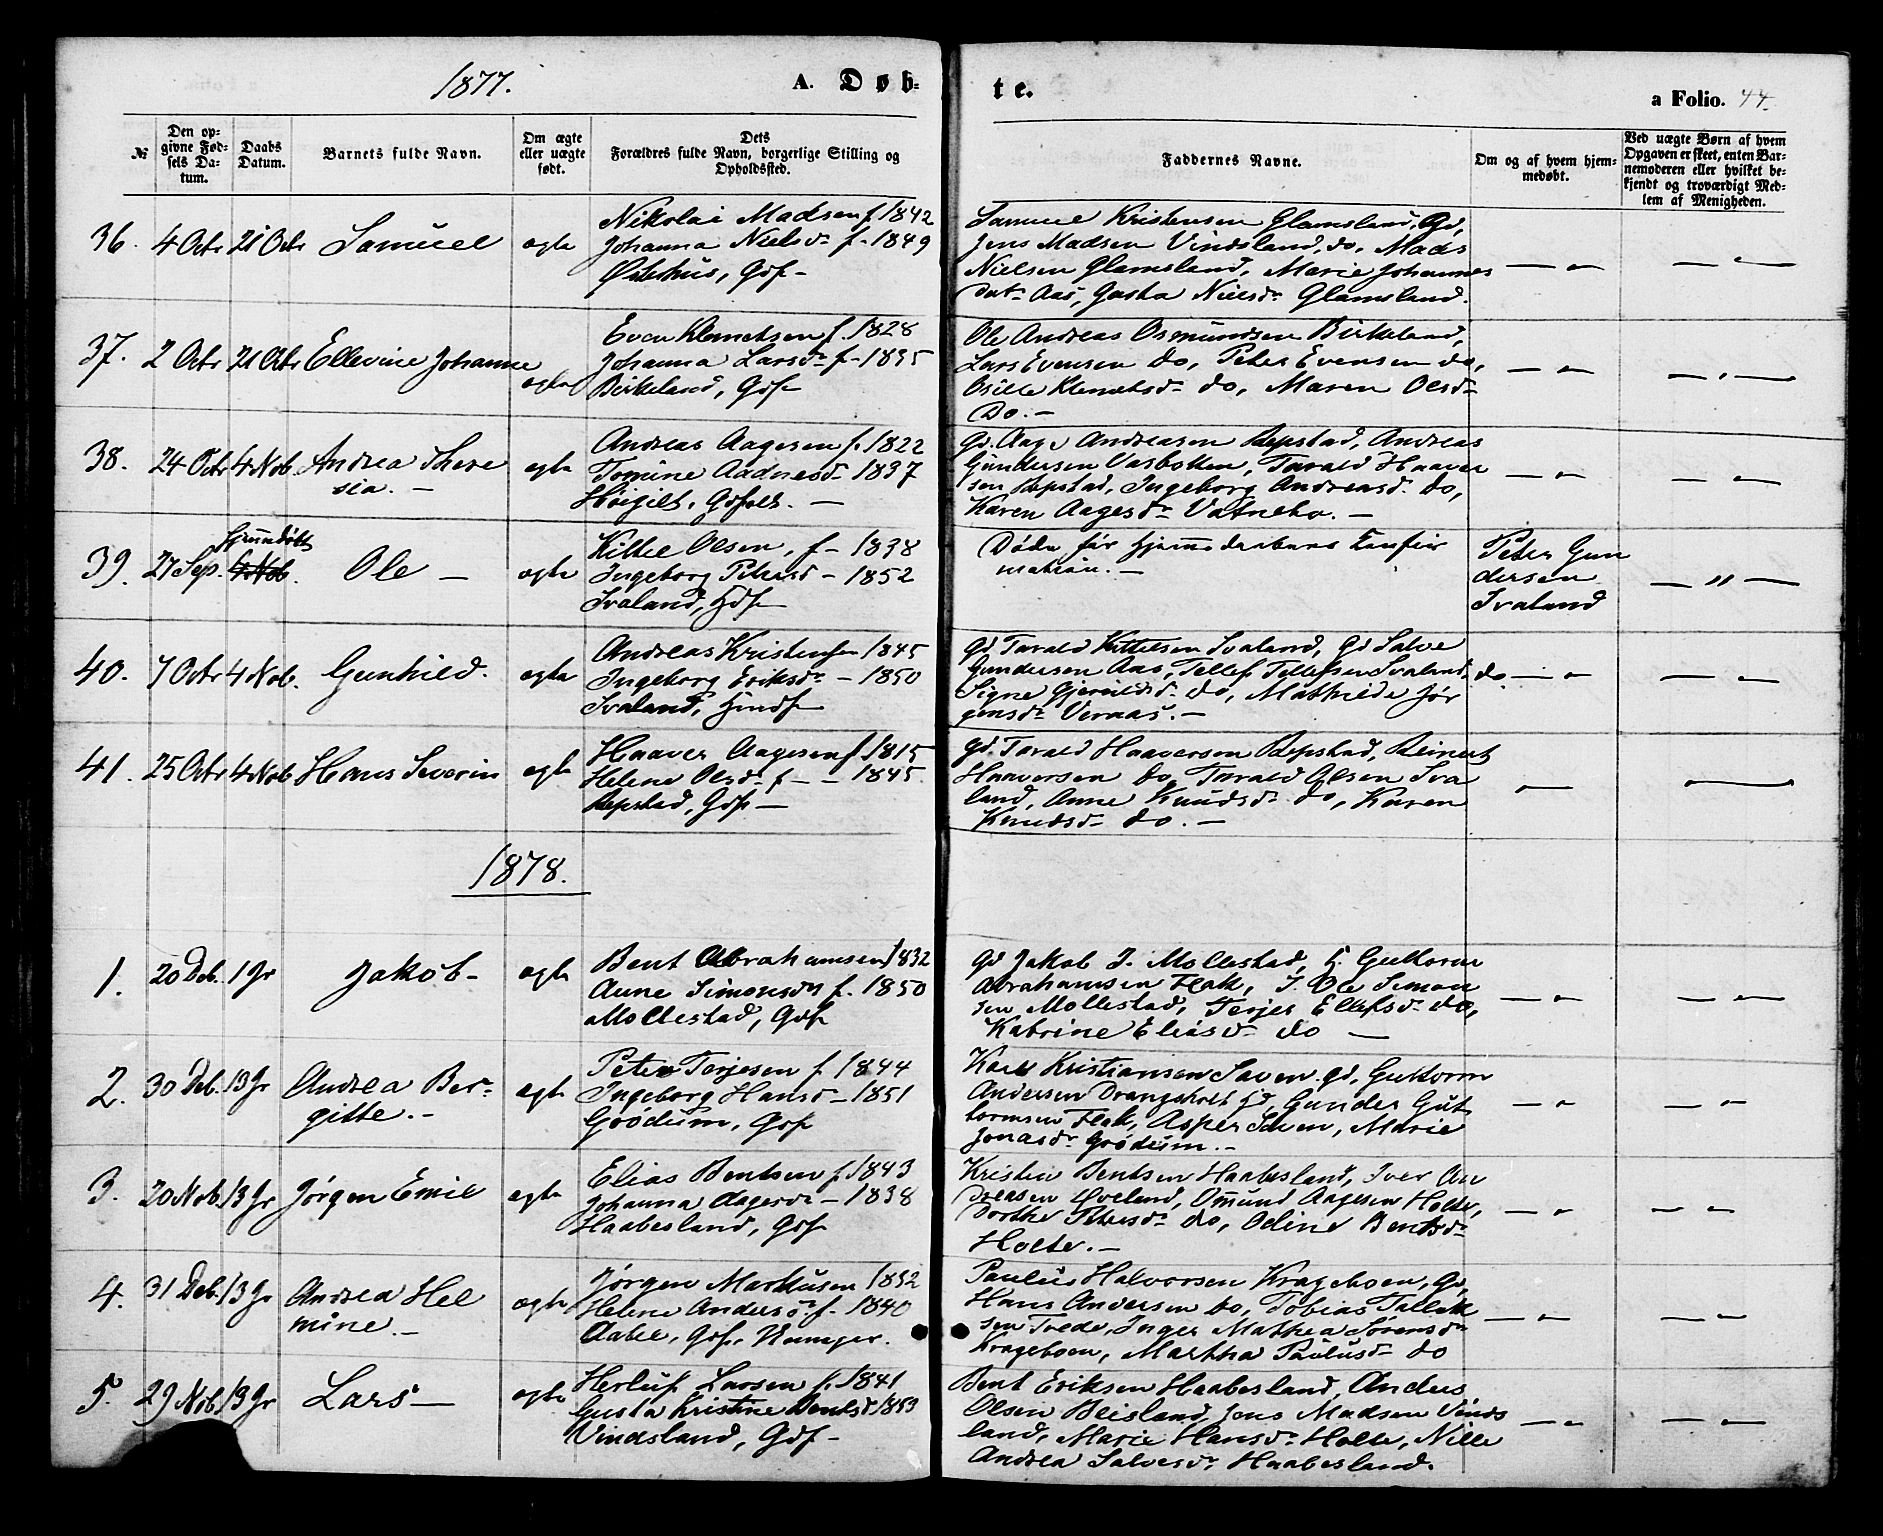 1877.
A. Døb-
te.
a Folio. 44.
№
Den op-
givne Fød-
sels Da-
tum.
Daabs
Datum.
Barnets fulde Navn.
Om ægte
eller uægte
født.
Dets
Forældres fulde Navn, borgerlige Stilling og
Opholdssted.
Faddernes Navne.
Om og af hvem hjem-
medøbt.
Ved uægte Børn af hvem
Opgaven er skeet, enten Bar-
nemoderen eller hvilket be-
kjendt og troværdigt Med-
lem af Menigheden.
36. 4 Octr 21 Octr Samuel ægte
Nikolai Madsen f. 1842
Johanna Nielsdr f. 1849
Gdf
Samuel Kristensen Glamsland, Gd,
Jens Madsen Vindsland, do, Mads
Nielsen Glamsland, Marie Johannes
datr Aas, Gusta Nielsdr Glamsland.
37. 2 Octr 21 Octr Ellevine Johanne ægte
Even Klemetsen f. 1828
Johanna Larsdr f. 1835
Birkeland, Gdf
Ole Andreas Osmundsen Birkeland,
Lars Evensen do, Peter Evensen do,
Klemetsdr do, Maren Olsdr
Do.
38. 24 Octr 4 Nob Andrea There
sia.
ægte
Andreas Aagesen f. 1822
Tomine Aadnesdr 1837
Høigilt, Gdfolk.
Gd. Aage Andreasen Repstad, Andreas
Gundersen Vasbotten, Tarald Haaver
sen Repstad, Ingeborg Andreasdr do,
Karen Aagesdr Vatnebo.
39. 27 Sep. Hjemmedøbt 4 Nob. Ole ægte
Kittel Olsen, f. 1838
Ingeborg Petersdr 1852
Ivaland, Hdf
Døde før Hjemmedaabens Konfir
mation.
Peter Gun
dersen
Ivaland
40. 7 Octr 4 Nob. Gunhild. ægte
Andreas Kristensen 1845
Ingeborg Eriksdr 1850
Ivaland, Hmdf
Gd Tarald Kittelsen Ivaland, Gd Salve
Gundersen Aas, Tellef Tellefsen Ivaland, do
Signe do, Mathilde Jør
gensdr Vernaas.
41. 25 Octr 4 Nob Hans Severin ægte
Haaver Aagesen f 1815
Helene Olsdr f 1845.
Repstad, Gdf
Gd. Tarald Haaversen Repstad, Reinert
Haaversen do, Tarald Olsen Iva
land, Anne Knudsdr do, Karen
Knudsdr do.
1878.
1. 20 Deb. 1 Jr Jakob ægte
Bent Abrahamsen 1832
Anne Simonsdr f. 1850
Mollestad, Gdf
Gd Jakob J. Mollestad, H. Guttorm
Abrahamsen Flak, I. Ole Simon
sen Mollestad, Terjer Ellefsdr do,
Katrine Eliasdr do
2. 30 Deb. 13 Jr Andrea Ber-
gitte.
ægte
Peter Terjesen f 1844
Ingeborg Hansdr 1851
Grødum, Gdf
Karl Kristiansen Saven. Gd. Guttorm
Andersen Drangsholt Hd Gunder Gut
tormsen Flak, Asper Saven, Marie
Jonasdr Grødum.
3. 20 Nob. 13 Jr Jørgen Emil ægte
Elias Bentsen f. 1843
Johanna Aagesdr 1838
Haabesland, Gdf
Kristen Bentsen Haabesland, Iver An
dreasen Øveland, Omund Aagesen Holte,
Dorthe Petersdr do, Odine Bentsdr
Holte.
4. 31 Deb. 13 Jr Andrea Hel
mine.
ægte
Jørgen Markusen 1832
Helene Andersdr f. 1840
Gdf,
Paulus Halvorsen Krageboen, Gd,
Hans Andersen do, Tobias Tallak
sen Tvede, Inger Mathea Sørensdr
Krageboen, Martha Paulusdr do
5. 29 Nob. 13 Jr Lars ægte
Herluf Larsen f. 1841
Gusta Kristine Bentsdr 1853
Vindsland, Gdf
Bent Eriksen Haabesland, Anders
Olsen Beisland, Jens Madsen Vinds
land, Marie Hansdr Holte, Nille
Andrea Salvesdr Haabesland.